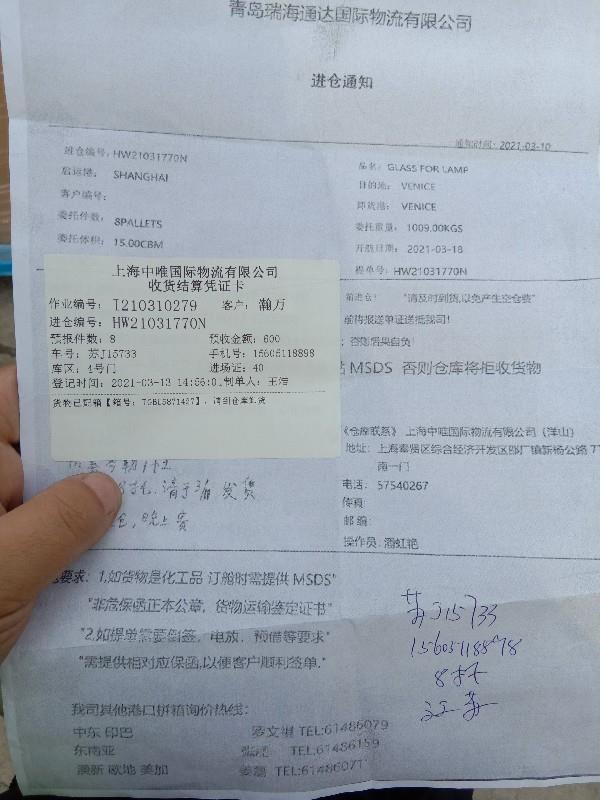 青岛瑞海通达国际物流有限公司
进仓通知
通知时间: 2021-03-10
进仓编号: HW21031770N
品名: GLASS FOR LAMP
启运港: SHANGHAI
目的地: VENICE
客户编号:
卸货港: VENICE
委托件数: 8PALLETS
委托重量: 1009.00KGS
委托体积: 15.00CBM
开航日期: 2021-03-18
提单号: HW21031770N
上海中唯国际物流有限公司
收货结算凭证卡
作业编号: I210310279 客户: 瀚万
进仓编号: HW21031770N
预报件数: 8 预收金额: 600
车号: 苏J15733 手机号: 15605118898
库区: 4号门 进场证: 40
登记时间: 2021-03-13 14:56:0 制单人: 王浩
货物已卸箱【箱号: TGBL5871427】, 请到仓库取货
前进仓! "请及时到货,以免产生空仓费"
前将报送单证送抵我司!
否则后果自负!
MSDS 否则仓库将拒收货物
《仓库联系》 上海中唯国际物流有限公司 (洋山)
地址: 上海奉贤区综合经济开发区邵厂镇新杨公路7
南一门
电话: 57540267
传真:
邮编:
操作员: 潘虹艳
要求: 1.如货物是化工品 订舱时需提供 MSDS"
"非危保函正本公章, 货物运输鉴定证书"
"2.如提单需要倒签, 电放, 预借等要求"
"需提供相对应保函,以便客户顺利签单."
苏J15733
15605118898
8托
江苏
我司其他港口拼箱询价热线:
中东 印巴 罗文祺 TEL:61486079
东南亚 TEL:61486159
澳新 欧地 美加 姜磊 TEL:61486071